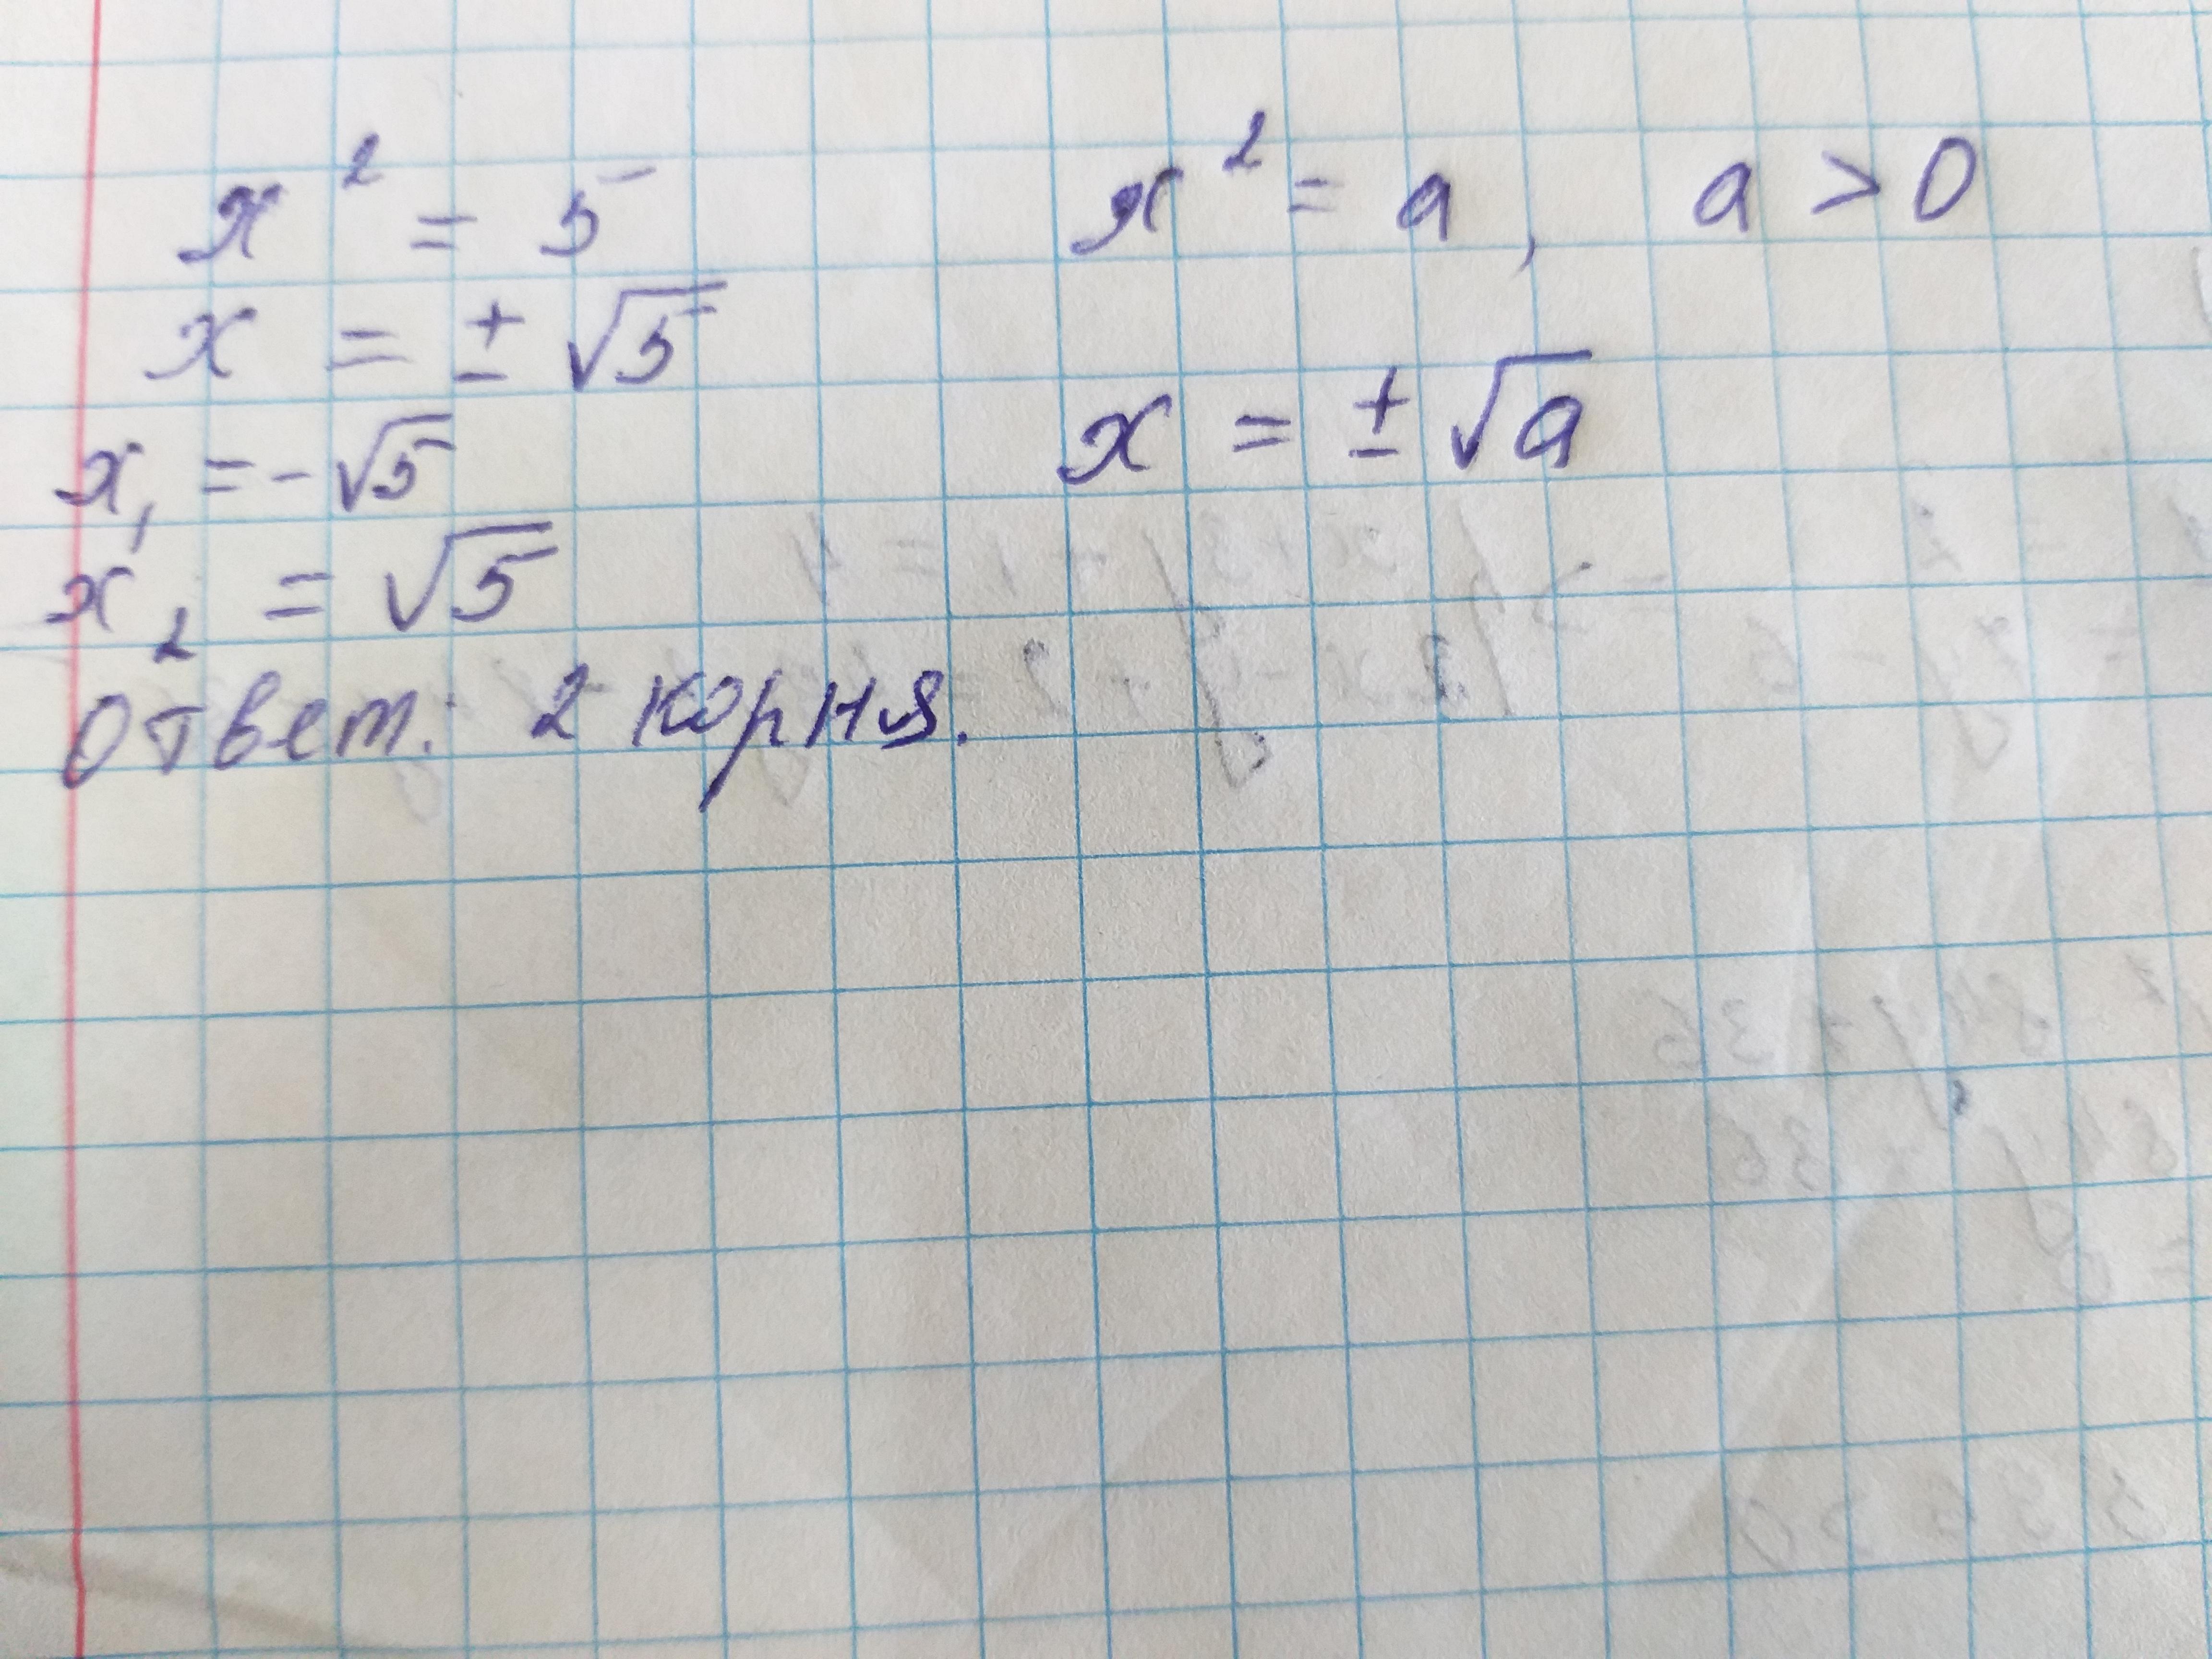 x² = 5
x = ± √5
x₁ = -√5
x₂ = √5
Ответ: 2 корня.
x² = a, a > 0
x = ± √a